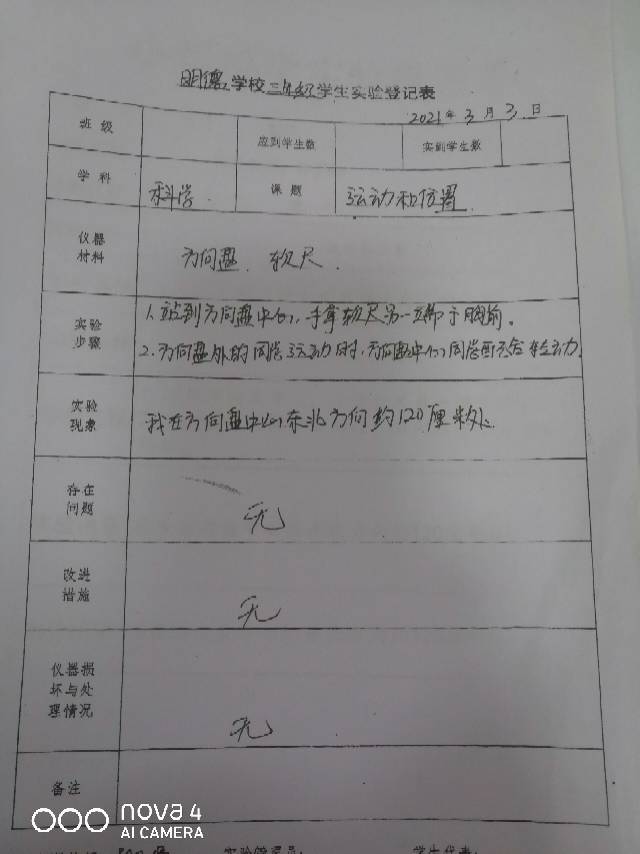 明德学校三年级学生实验登记表
2021年3月3日
班级 应到学生数 实到学生数
学科 科学 课题 运动和位置
仪器材料 方向盘、软尺.
实验步骤 1.站到方向盘中心,手拿软尺另一端即于胸前。
2.方向盘外的同学运动时,方向盘中心同学配合转动.
实验现象 我在方向盘中心东北方向约120厘米处.
存在问题 无
改进措施 无
仪器损坏与处理情况 无
备注
nova 4
AI CAMERA
实验管理员: 学生代表: